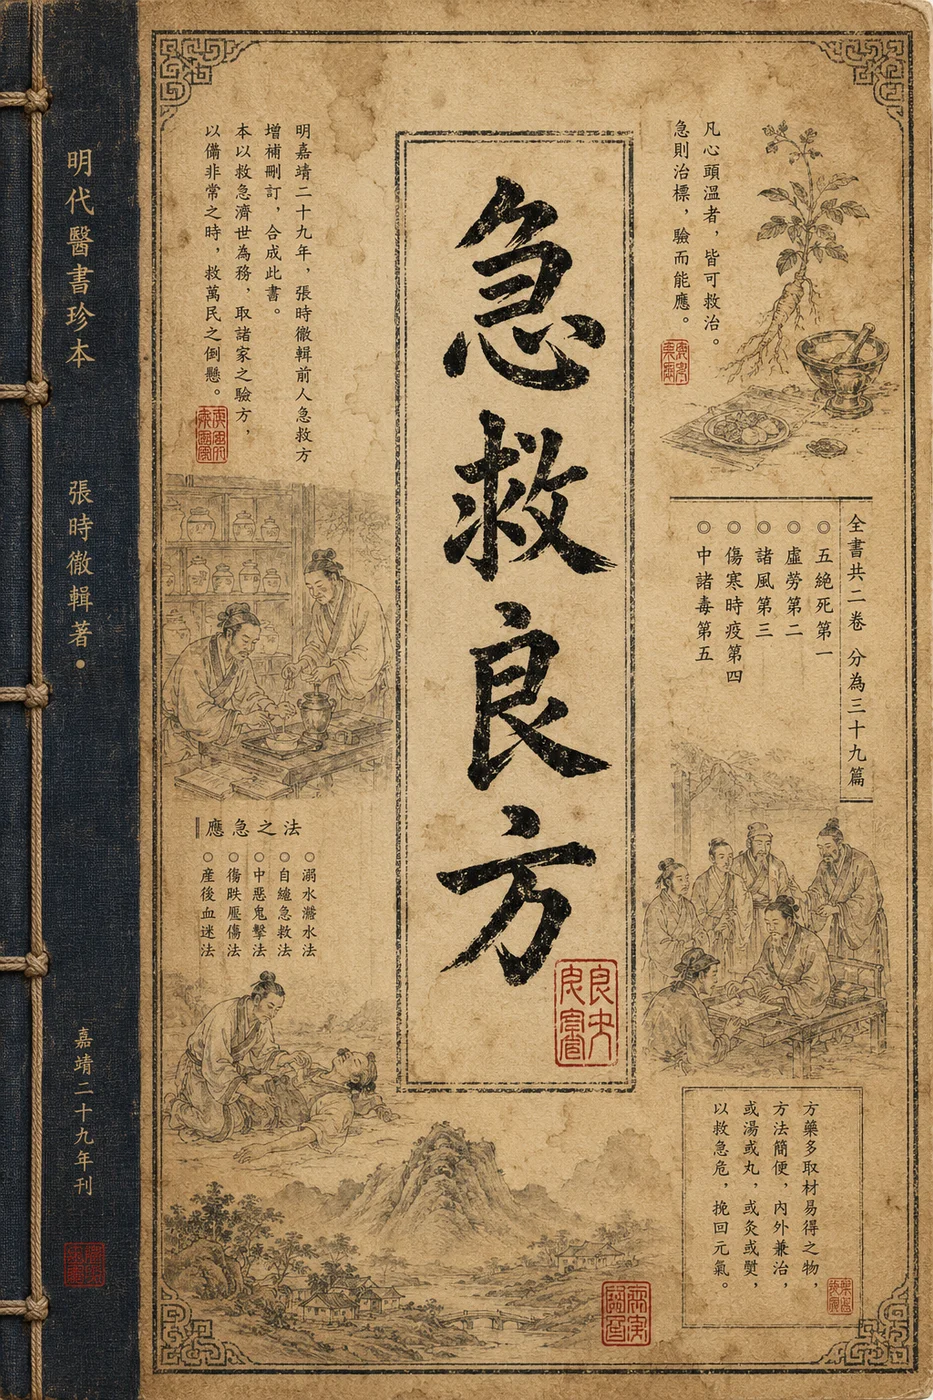 急救良方
凡心頭溫者，皆可救治。
急則治標，驗而能應。
明嘉靖二十九年，張時徹輯前人急救方
增補刪訂，合成此書。
本以救急濟世為務，取諸家之驗方，
以備非常之時，救萬民之倒懸。
全書共二卷 分為三十九篇
○五絕死第一
○虛勞第二
○諸風第三
○傷寒時疫第四
○中諸毒第五
應急之法
○溺水灌水法
○自縊急救法
○中惡鬼擊法
○產後血迷法
方藥多取材易得之物，
方法簡便，內外兼治，
或湯或丸，或灸或熨，
以救急危，挽回元氣。
明代醫書珍本
張時徹輯著•
嘉靖二十九年刊